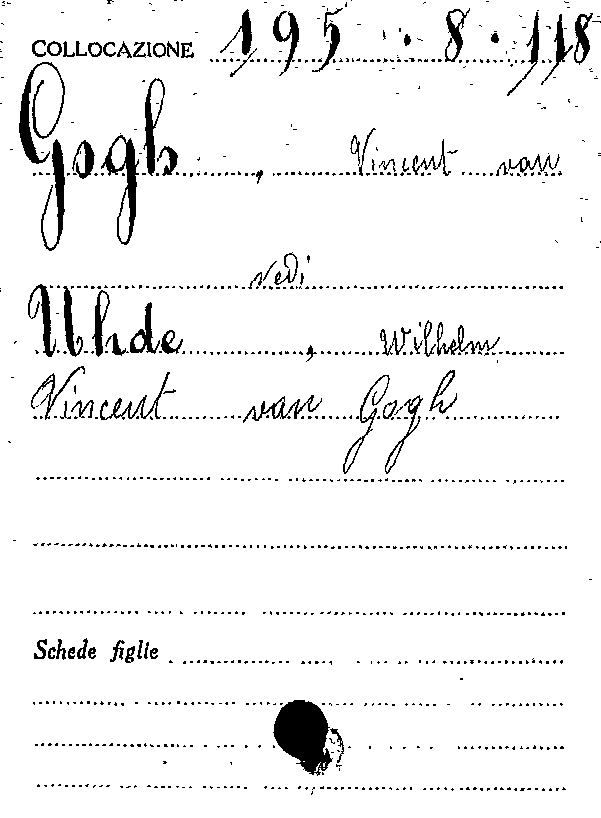 COLLOCAZIONE 195.8.118
Gogh, Vincent van
vedi
Uhde, Wilhelm
Vincent van Gogh
Schede figlie